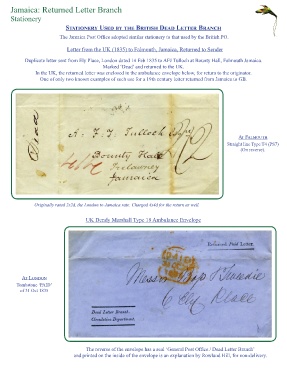 Jamaica: Returned Letter Branch
Stationery
STATIONERY USED BY THE BRITISH DEAD LETTER BRANCH
The Jamaica Post Office adopted similar stationery to that used by the British PO.
Letter from the UK (1835) to Falmouth, Jamaica, Returned to Sender
Duplicate letter sent from Ely Place, London dated 14 Feb 1835 to AFJ Tulloch at Bounty Hall, Falmouth Jamaica.
Marked 'Dead' and returned to the UK.
In the UK, the returned letter was enclosed in the ambulance envelope below, for return to the originator.
One of only two known examples of such use for a 19th century letter returned from Jamaica to GB.
Dead
A. F. J. Tulloch Esqr
Bounty Hall
Trelawney
Jamaica
AT FALMOUTH
Straight line Type
(On reverse).
Originally rated 2/2d, the London to Jamaica rate. Charged for the return as well.
UK Dendy Marshall Type 18 Ambulance Envelope
Returned Post Letter.
PAID
Messrs
6 Ely Place
Dead Letter Branch,
Circulation Department.
AT LONDON
Tombstone 'PAID'
of 31 Oct 1835
The reverse of the envelope has a seal 'General Post Office / Dead Letter Branch'
and printed on the inside of the envelope is an explanation by Rowland Hill, for non-delivery.